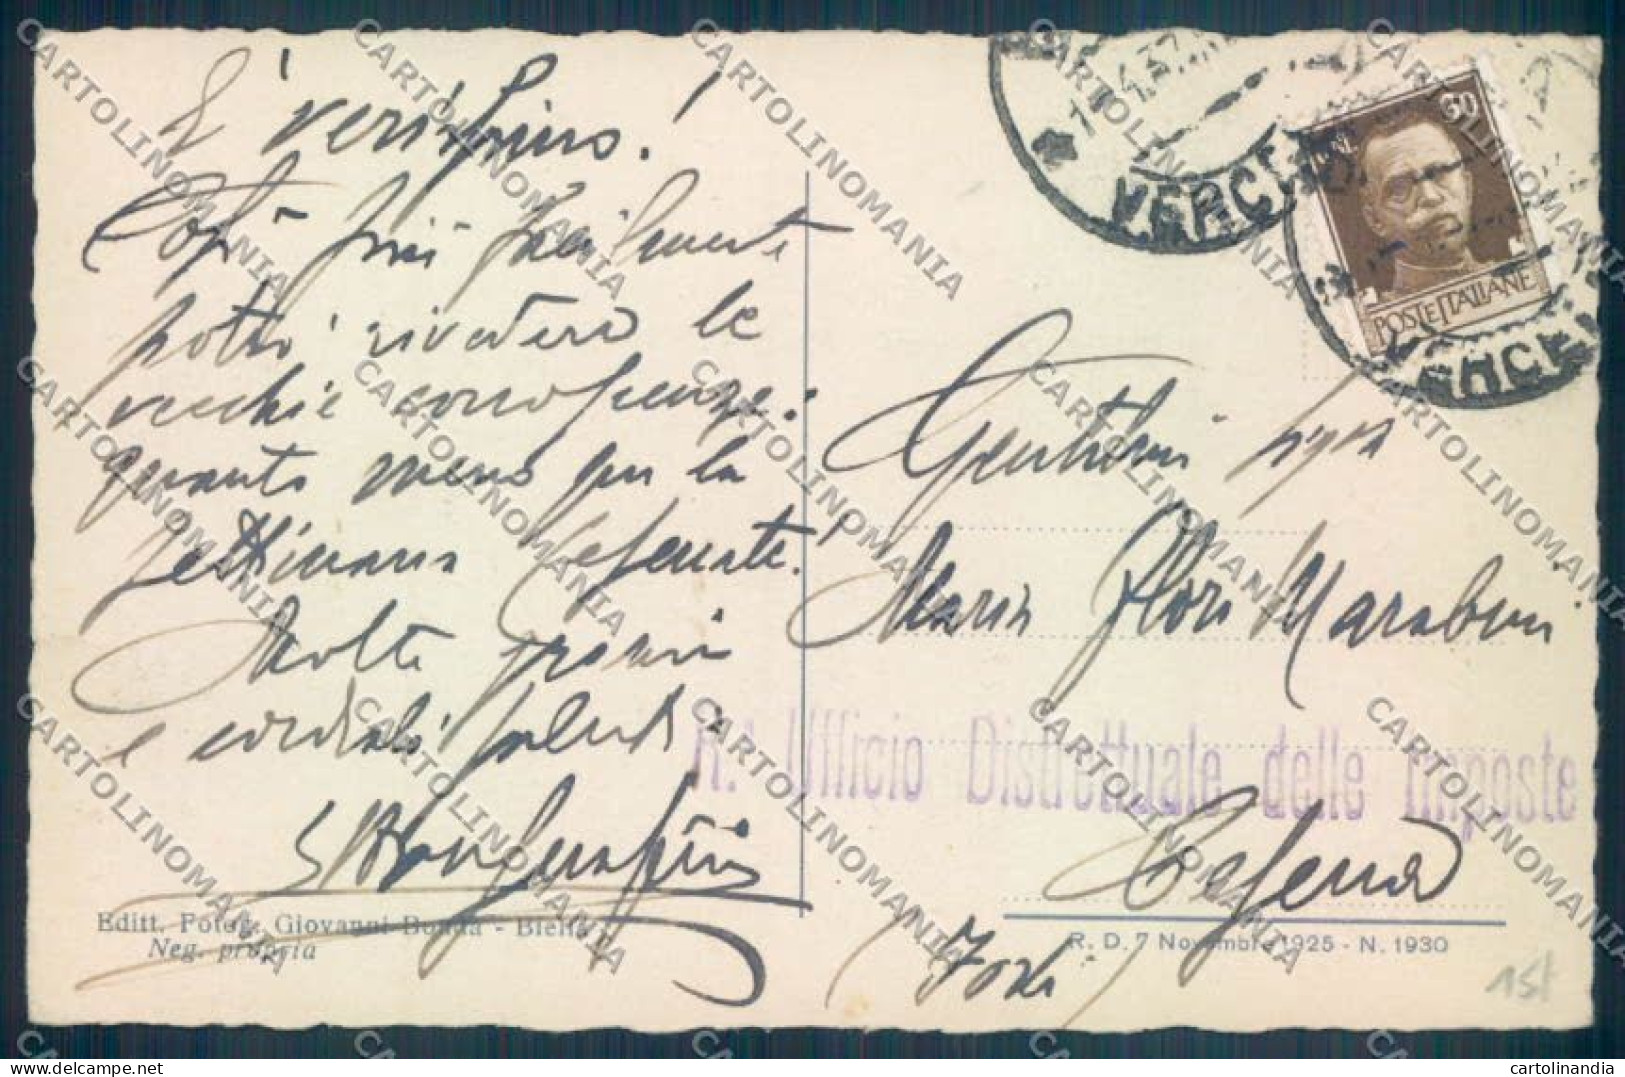 E' verissimo!
Così più facilmente
potrò rivedere le
vecchie conoscenze:
quanto meno per la
settimana Cesenate.
Molte grazie
e cordiali saluti
Editt. Fotog. Giovanni Bonda - Biella
Neg. propria
1.4.37
VERCELLI
30
POSTE ITALIANE
VERCELLI
Gentilma sigra
Maria Flori Marabini
R. Ufficio Distrettuale delle Imposte
Cesena
Forlì
R. D. 7 Novembre 1925 - N. 1930
15t
CARTOLINOMANIA
cartolinandia